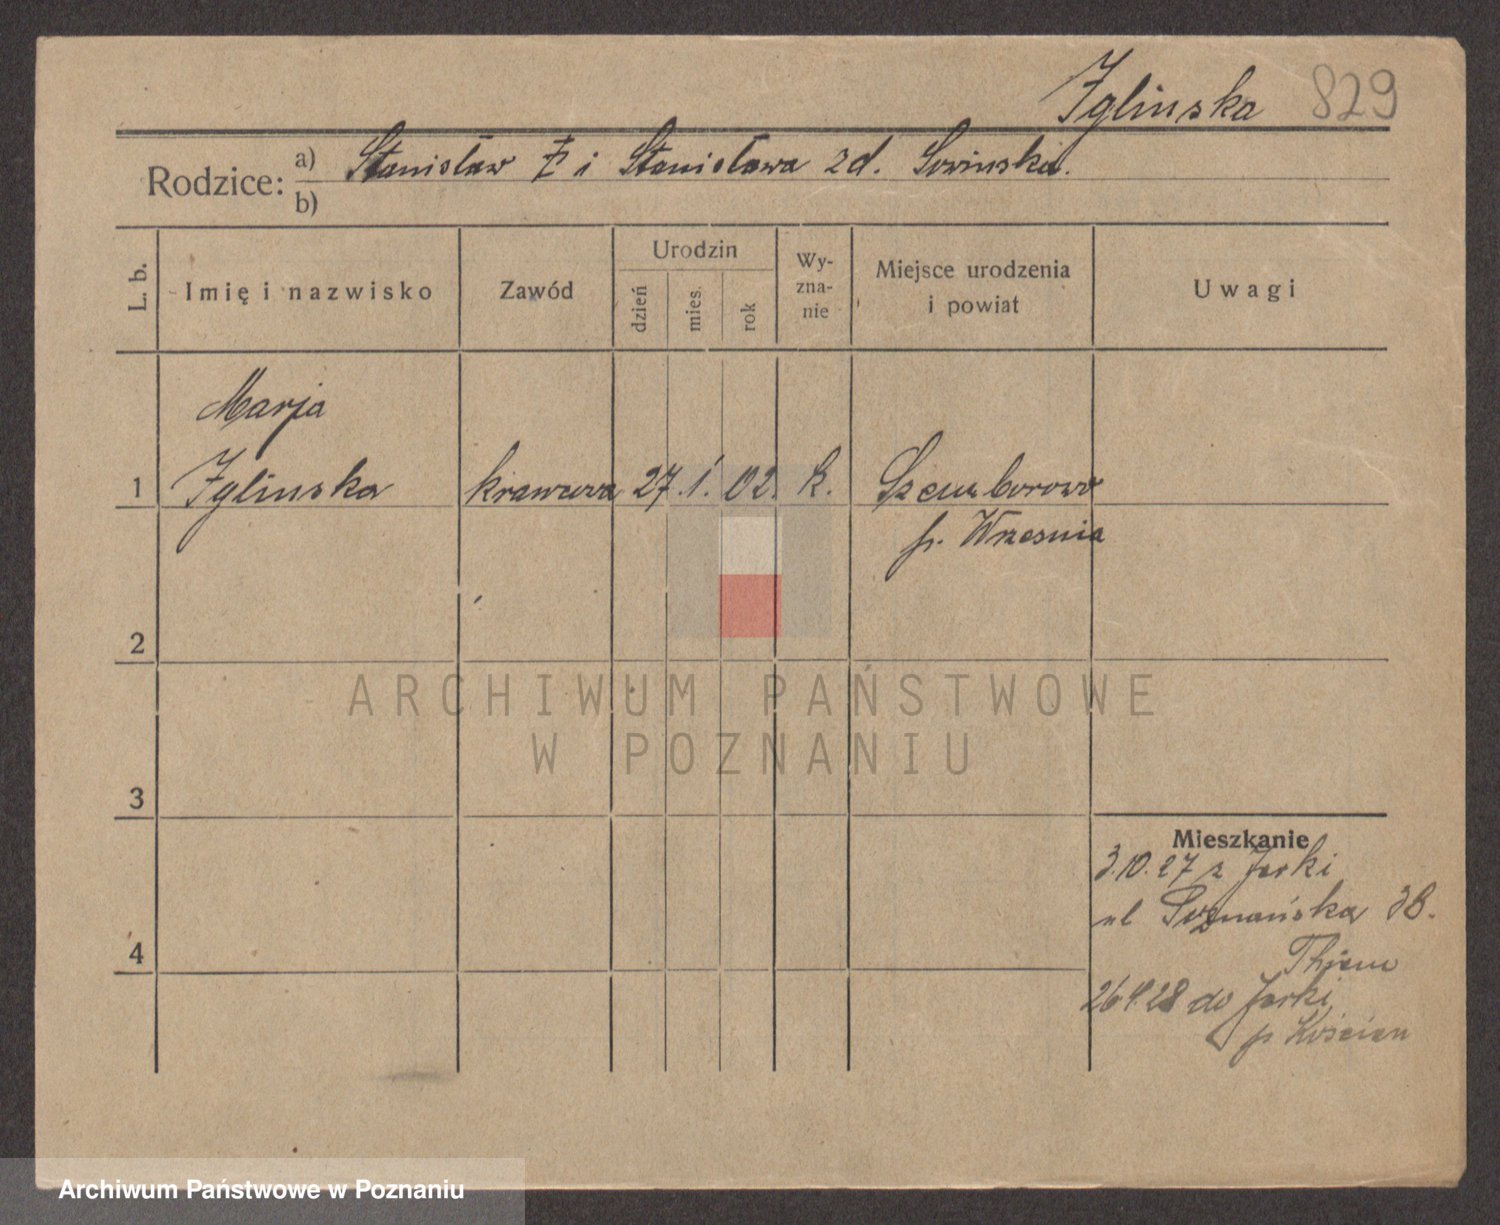 Iglinska 829
Rodzice: a) Stanisław I i Stanisława zd. Sowinska.
b)
L. b.
Imię i nazwisko
Zawód
Urodzin
dzień
mies.
rok
Wy-
zna-
nie
Miejsce urodzenia
i powiat
Uwagi
Marja
1 Iglinska krawcowa 27. 1. 02. k. Szemborowo
p. Wrzesnia
2
ARCHIWUM PAŃSTWOWE
W POZNANIU
3
Mieszkanie
3.10.27 z Jerki
ul Poznańska 38.
4
26 4.28 do Jerki
p Kościan
Archiwum Państwowe w Poznaniu